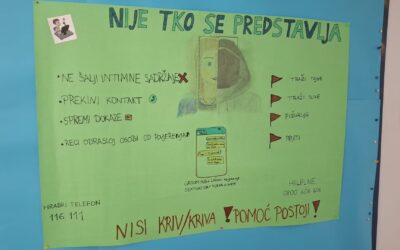 NIJE TKO SE PREDSTAVLJA
• NE ŠALJI INTIMNE SADRŽAJE
• PREKINI KONTAKT
• SPREMI DOKAZE
• RECI ODRASLOJ OSOBI OD POVJERENJA
TRAŽI TAJNE
TRAŽI SLIKE
POŽURUJE
PRIJETI
HRABRI TELEFON
116 111
HELPLINE
0800 606 606
NISI KRIV/KRIVA ! POMOĆ POSTOJI !